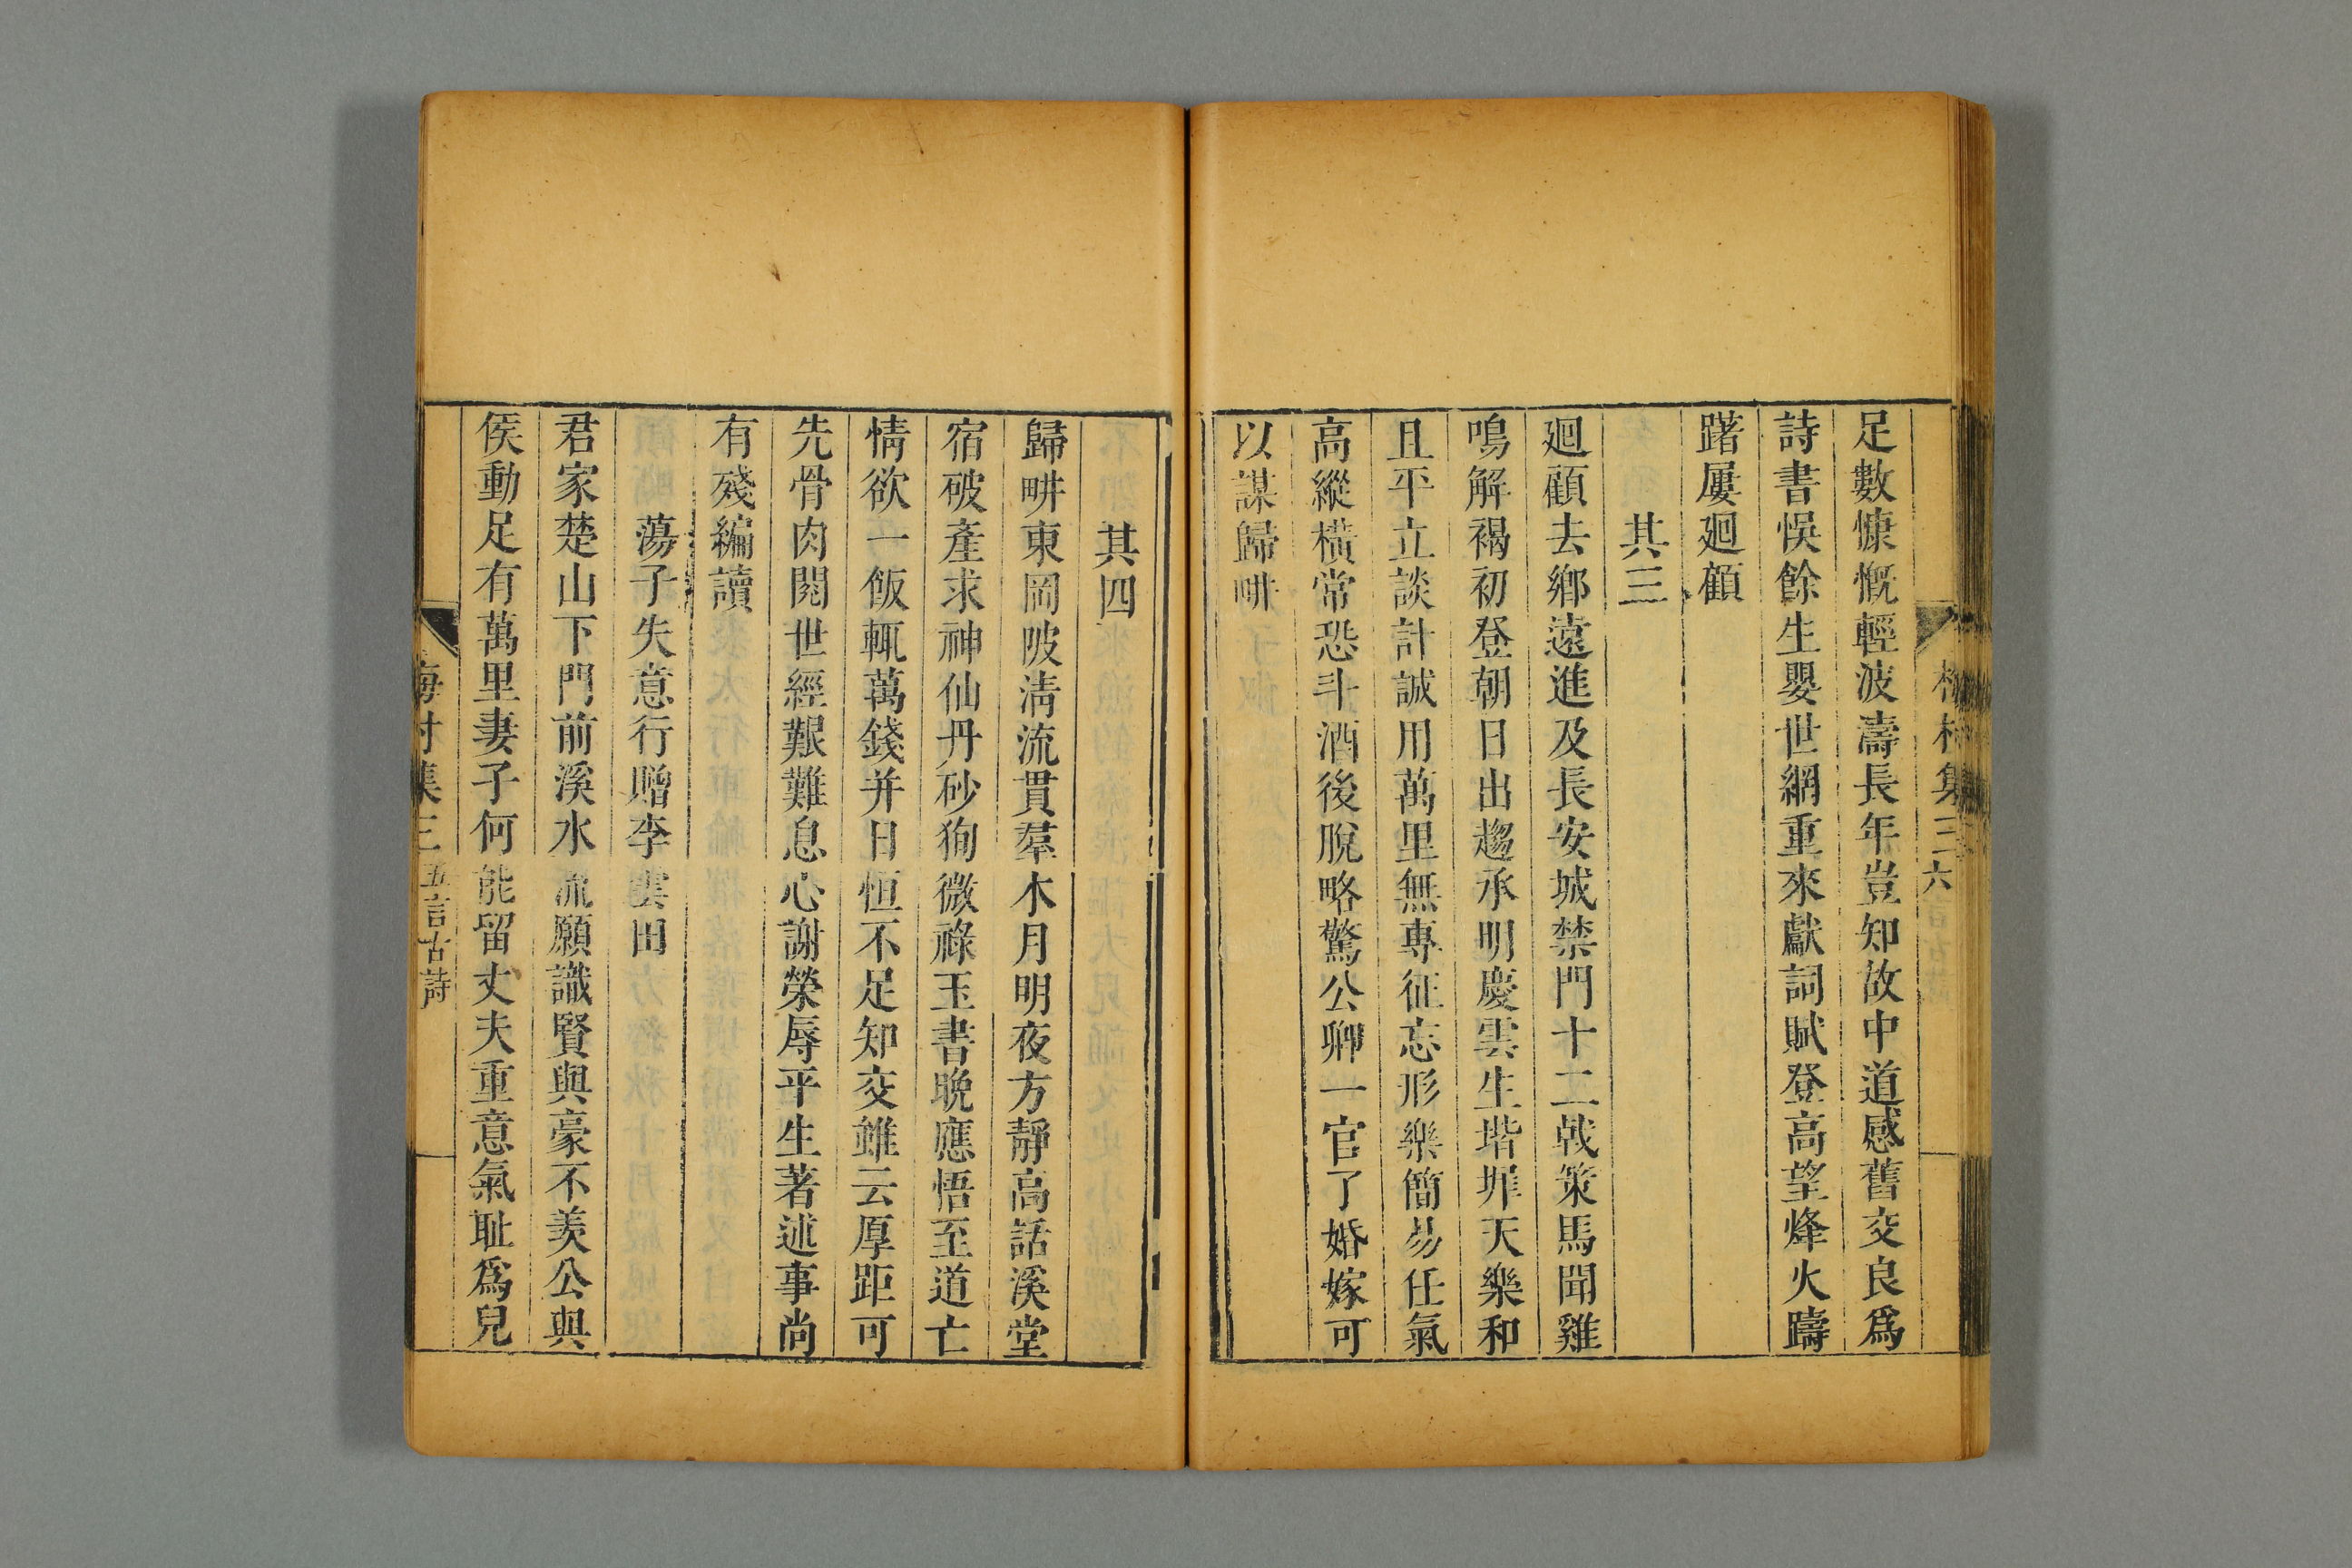 足數慷慨輕波濤長年豈知故中道感舊交良爲
詩書悞餘生嬰世網重來獻詞賦登高望烽火躊
躇屢廻顧
其三
廻顧去鄉遠進及長安城禁門十二戟策馬聞雞
鳴解褐初登朝日出趨承明慶雲生堦墀天樂和
且平立談計誠用萬里無專征忘形樂簡易任氣
高縱橫常恐斗酒後脫略驚公卿一官了婚嫁可
以謀歸畊
其四
歸畊東岡陂清流貫羣木月明夜方靜高話溪堂
宿破產求神仙丹砂狥微祿玉書晚應悟至道亡
情欲一飯輒萬錢并日恒不足知交雖云厚距可
先骨肉閱世經艱難息心謝榮辱平生著述事尚
有殘編讀
蕩子失意行贈李雲田
君家楚山下門前溪水流願識賢與豪不羨公與
侯動足有萬里妻子何能留丈夫重意氣耻爲兒
梅村集三 五言古詩